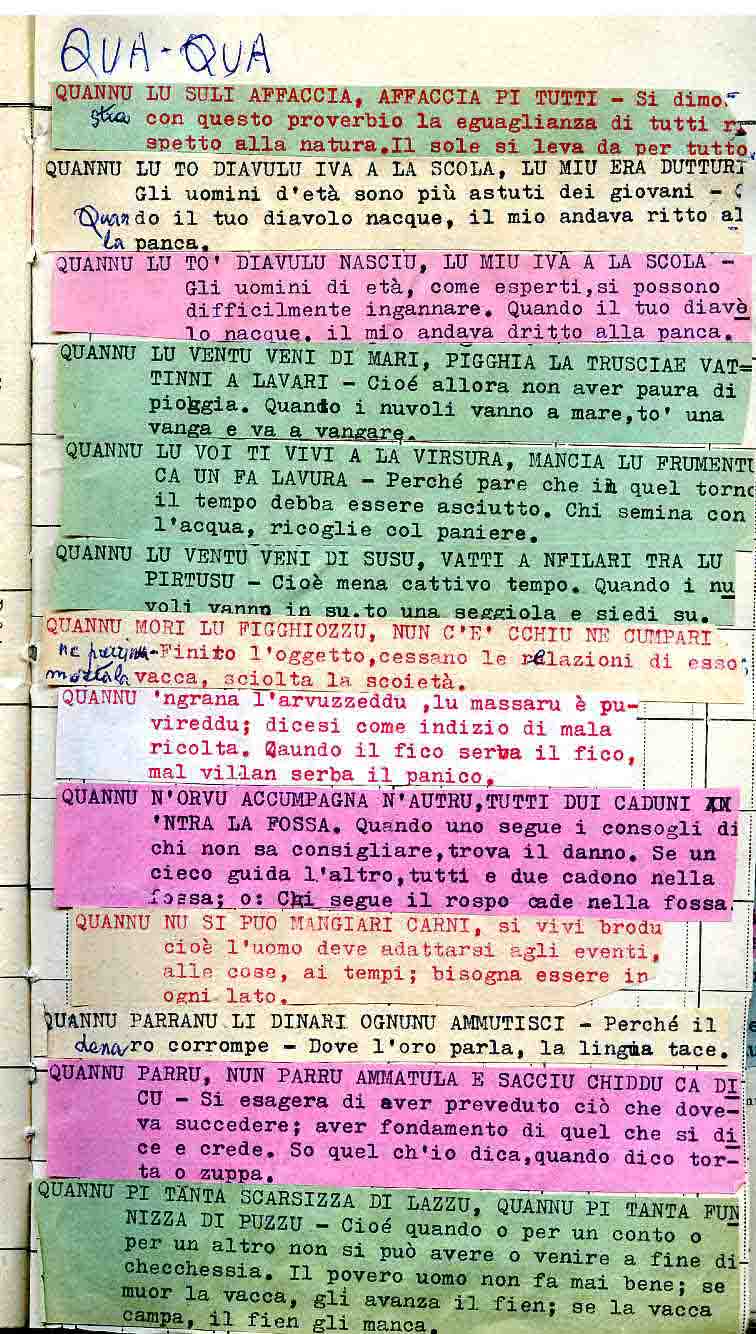 QUA-QUA
QUANNU LU SULI AFFACCIA, AFFACCIA PI TUTTI - Si dimo
stra con questo proverbio la eguaglianza di tutti r
spetto alla natura.Il sole si leva da per tutto.
QUANNU LU TO DIAVULU IVA A LA SCOLA, LU MIU ERA DUTTURI
Gli uomini d'età sono più astuti dei giovani -
Quando il tuo diavolo nacque, il mio andava ritto al
la panca.
QUANNU LU TO' DIAVULU NASCIU, LU MIU IVA A LA SCOLA -
Gli uomini di età, come esperti,si possono
difficilmente ingannare. Quando il tuo diavè
lo nacque, il mio andava dritto alla panca.
QUANNU LU VENTU VENI DI MARI, PIGGHIA LA TRUSCIAE VAT=
TINNI A LAVARI - Cioé allora non aver paura di
pioggia. Quando i nuvoli vanno a mare,to' una
vanga e va a vangare.
QUANNU LU VOI TI VIVI A LA VIRSURA, MANCIA LU FRUMENTU
CA UN FA LAVURA - Perché pare che in quel torno
il tempo debba essere asciutto. Chi semina con
l'acqua, ricoglie col paniere.
QUANNU LU VENTU VENI DI SUSU, VATTI A NFILARI TRA LU
PIRTUSU - Cioè mena cattivo tempo. Quando i nu
voli vanno in su,to una seggiola e siedi su.
QUANNU MORI LU FIGGHIOZZU, NUN C'E' CCHIU NE CUMPARI
-Finito l'oggetto,cessano le relazioni di esso;
morta la vacca, sciolta la scoietà.
QUANNU 'ngrana l'arvuzzeddu ,lu massaru è pu-
vireddu; dicesi come indizio di mala
ricolta. Qaundo il fico serba il fico,
mal villan serba il panico,
QUANNU N'ORVU ACCUMPAGNA N'AUTRU,TUTTI DUI CADUNI
'NTRA LA FOSSA. Quando uno segue i consogli di
chi non sa consigliare,trova il danno. Se un
cieco guida l'altro,tutti e due cadono nella
fossa; o: Chi segue il rospo cade nella fossa
QUANNU NU SI PUO MANGIARI CARNI, si vivi brodu
cioè l'uomo deve adattarsi agli eventi,
alle cose, ai tempi; bisogna essere in
ogni lato.
QUANNU PARRANU LI DINARI OGNUNU AMMUTISCI - Perché il
denaro corrompe - Dove l'oro parla, la lingua tace.
QUANNU PARRU, NUN PARRU AMMATULA E SACCIU CHIDDU CA DI
CU - Si esagera di aver preveduto ciò che dove-
va succedere; aver fondamento di quel che si di
ce e crede. So quel ch'io dica,quando dico tor-
ta o zuppa.
QUANNU PI TANTA SCARSIZZA DI LAZZU, QUANNU PI TANTA FUN
NIZZA DI PUZZU - Cioé quando o per un conto o
per un altro non si può avere o venire a fine di-
checchessia. Il povero uomo non fa mai bene; se
muor la vacca, gli avanza il fien; se la vacca
campa, il fien gli manca.